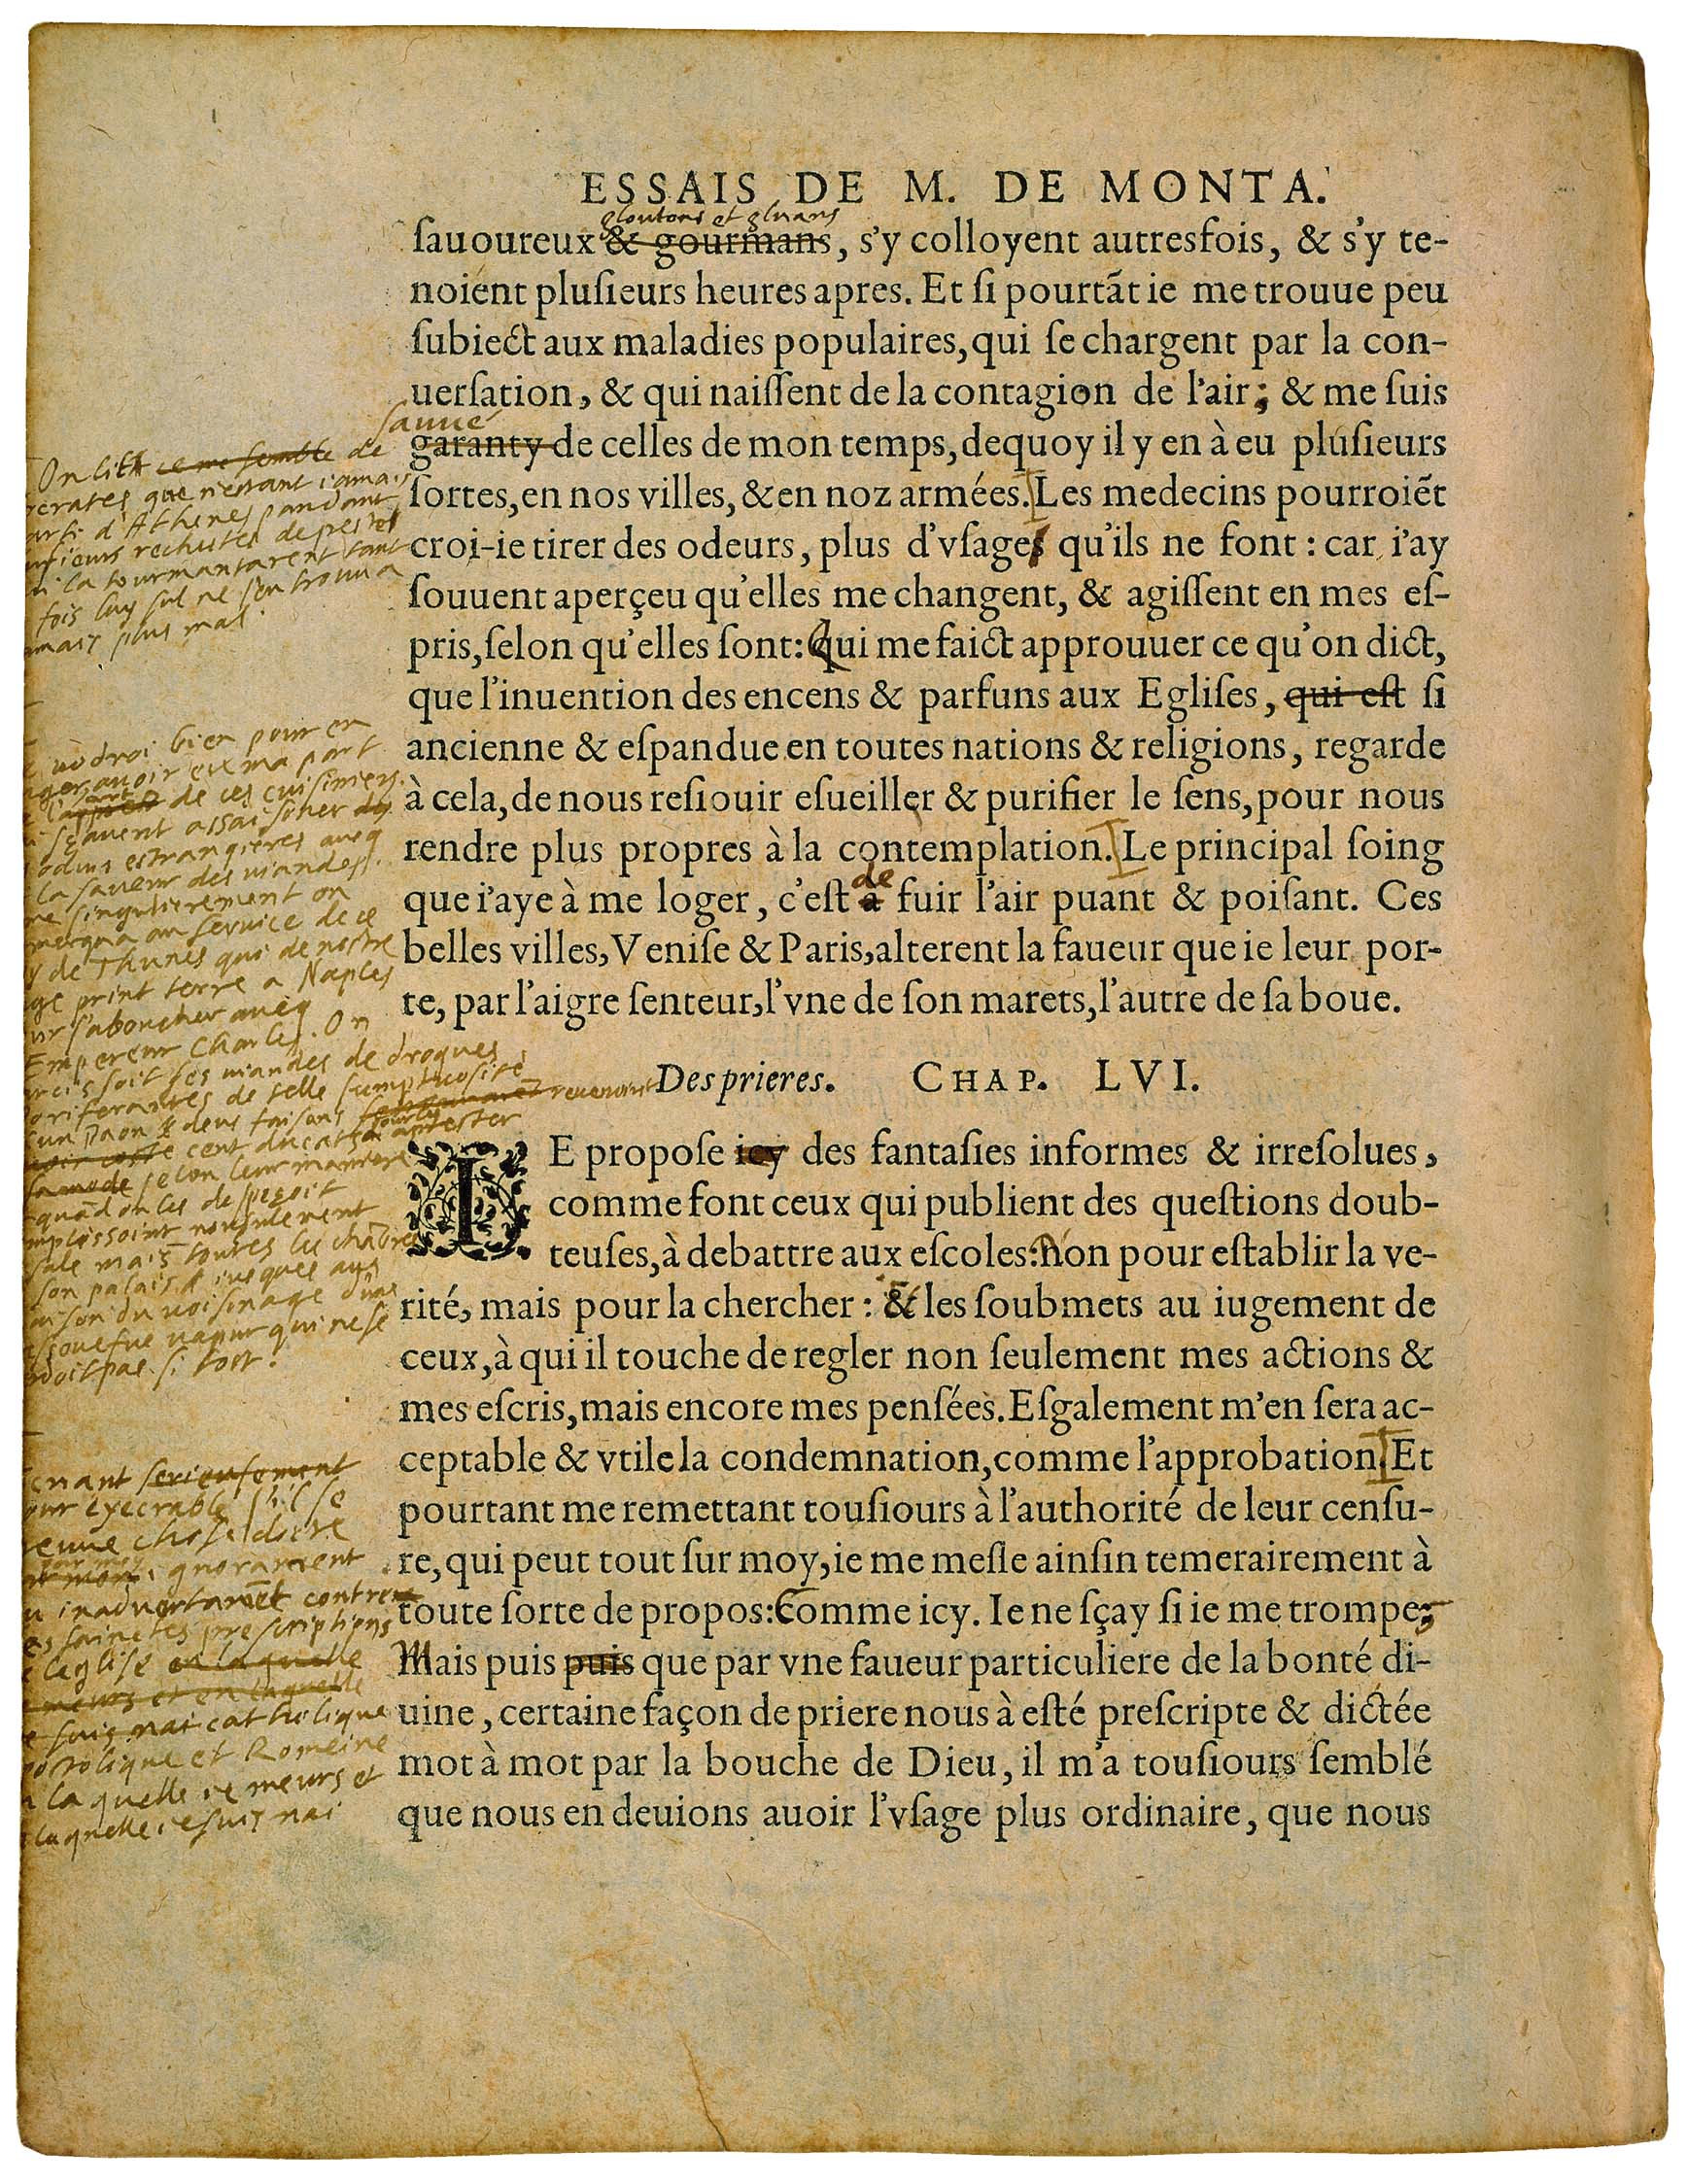 ESSAIS DE M. DE MONTA.
gloutons et gluans
ſauoureux & gourmans, s'y colloyent autresfois, & s'y te-
noient pluſieurs heures apres. Et ſi pourtãt ie me trouue peu
ſubiect aux maladies populaires, qui ſe chargent par la con-
uerſation, & qui naiſſent de la contagion de l'air; & me ſuis
sauué
garanty de celles de mon temps, dequoy il y en à eu pluſieurs
ſortes, en nos villes, & en noz armées. Les medecins pourroiẽt
croi-ie tirer des odeurs, plus d'vſages qu'ils ne font : car i'ay
ſouuent aperçeu qu'elles me changent, & agiſſent en mes eſ-
pris, ſelon qu'elles ſont: Qui me faict approuuer ce qu'on dict,
que l'inuention des encens & parfuns aux Egliſes, qui eſt ſi
ancienne & eſpandue en toutes nations & religions, regarde
à cela, de nous reſiouir eſueiller & purifier le ſens, pour nous
rendre plus propres à la contemplation. Le principal ſoing
de
que i'aye à me loger, c'eſt à fuir l'air puant & poiſant. Ces
belles villes, Veniſe & Paris, alterent la faueur que ie leur por-
te, par l'aigre ſenteur, l'vne de ſon marets, l'autre de ſa boue.
On lict ce me semble de
crates que n'estant iamais
arti d'Athenes pandant
usieurs rechutes de peste
i la tourmantarent tant
fois luy sul ne s'en trouua
mais plus mal.
uodroi bien pour en
iger auoir eu ma part
l'art de ces cuisiniers
i sçauent assaisoner
odurs estrangieres aueq
la saueur des uiandes.
me singulierement on
merqua au seruice de ce
y de Thunes qui de nostre
age print terre a Naples
ur s'aboucher aueq
Empereur Charles. On
arcissoit ses uiandes de drogues
oriferantes de telle sumptuosite
un Paon & deus faisans reuenoint
cent ducats pour les aprester
sa mode selon leur maniere
quãd on les despeçoit
mplissoint nonsulement
sale mais toutes les chãbres
son palais & iusques aus
aison du uoisinage d'une
ssouefue uapur qui ne se
doit pas si tost.
Des prieres. CHAP. LVI.
IE propoſe icy des fantaſies informes & irreſolues,
comme font ceux qui publient des queſtions doub-
teuſes, à debattre aux eſcoles: non pour eſtablir la ve-
rité, mais pour la chercher : & les ſoubmets au iugement de
ceux, à qui il touche de regler non ſeulement mes actions &
mes eſcris, mais encore mes penſées. Eſgalement m'en ſera ac-
ceptable & vtile la condemnation, comme l'approbation. Et
pourtant me remettant touſiours à l'authorité de leur cenſu-
re, qui peut tout ſur moy, ie me meſle ainſin temerairement à
toute ſorte de propos: Comme icy. Ie ne ſçay ſi ie me trompe;
Mais puis puis que par vne faueur particuliere de la bonté di-
uine, certaine façon de priere nous à eſté preſcripte & dictée
mot à mot par la bouche de Dieu, il m'a touſiours ſemblé
que nous en deuions auoir l'vſage plus ordinaire, que nous
enant serieusement
our execrable s'il se
reuue chose dicte
par moy ignorammant
u inaduertamẽt contre
es sainctes prescriptions
e l'eglise en laquelle
meurs et en laquelle
e suis nai catholique
ostolique et Romeine
n la quelle ie meurs et
laquelle ie suis nai